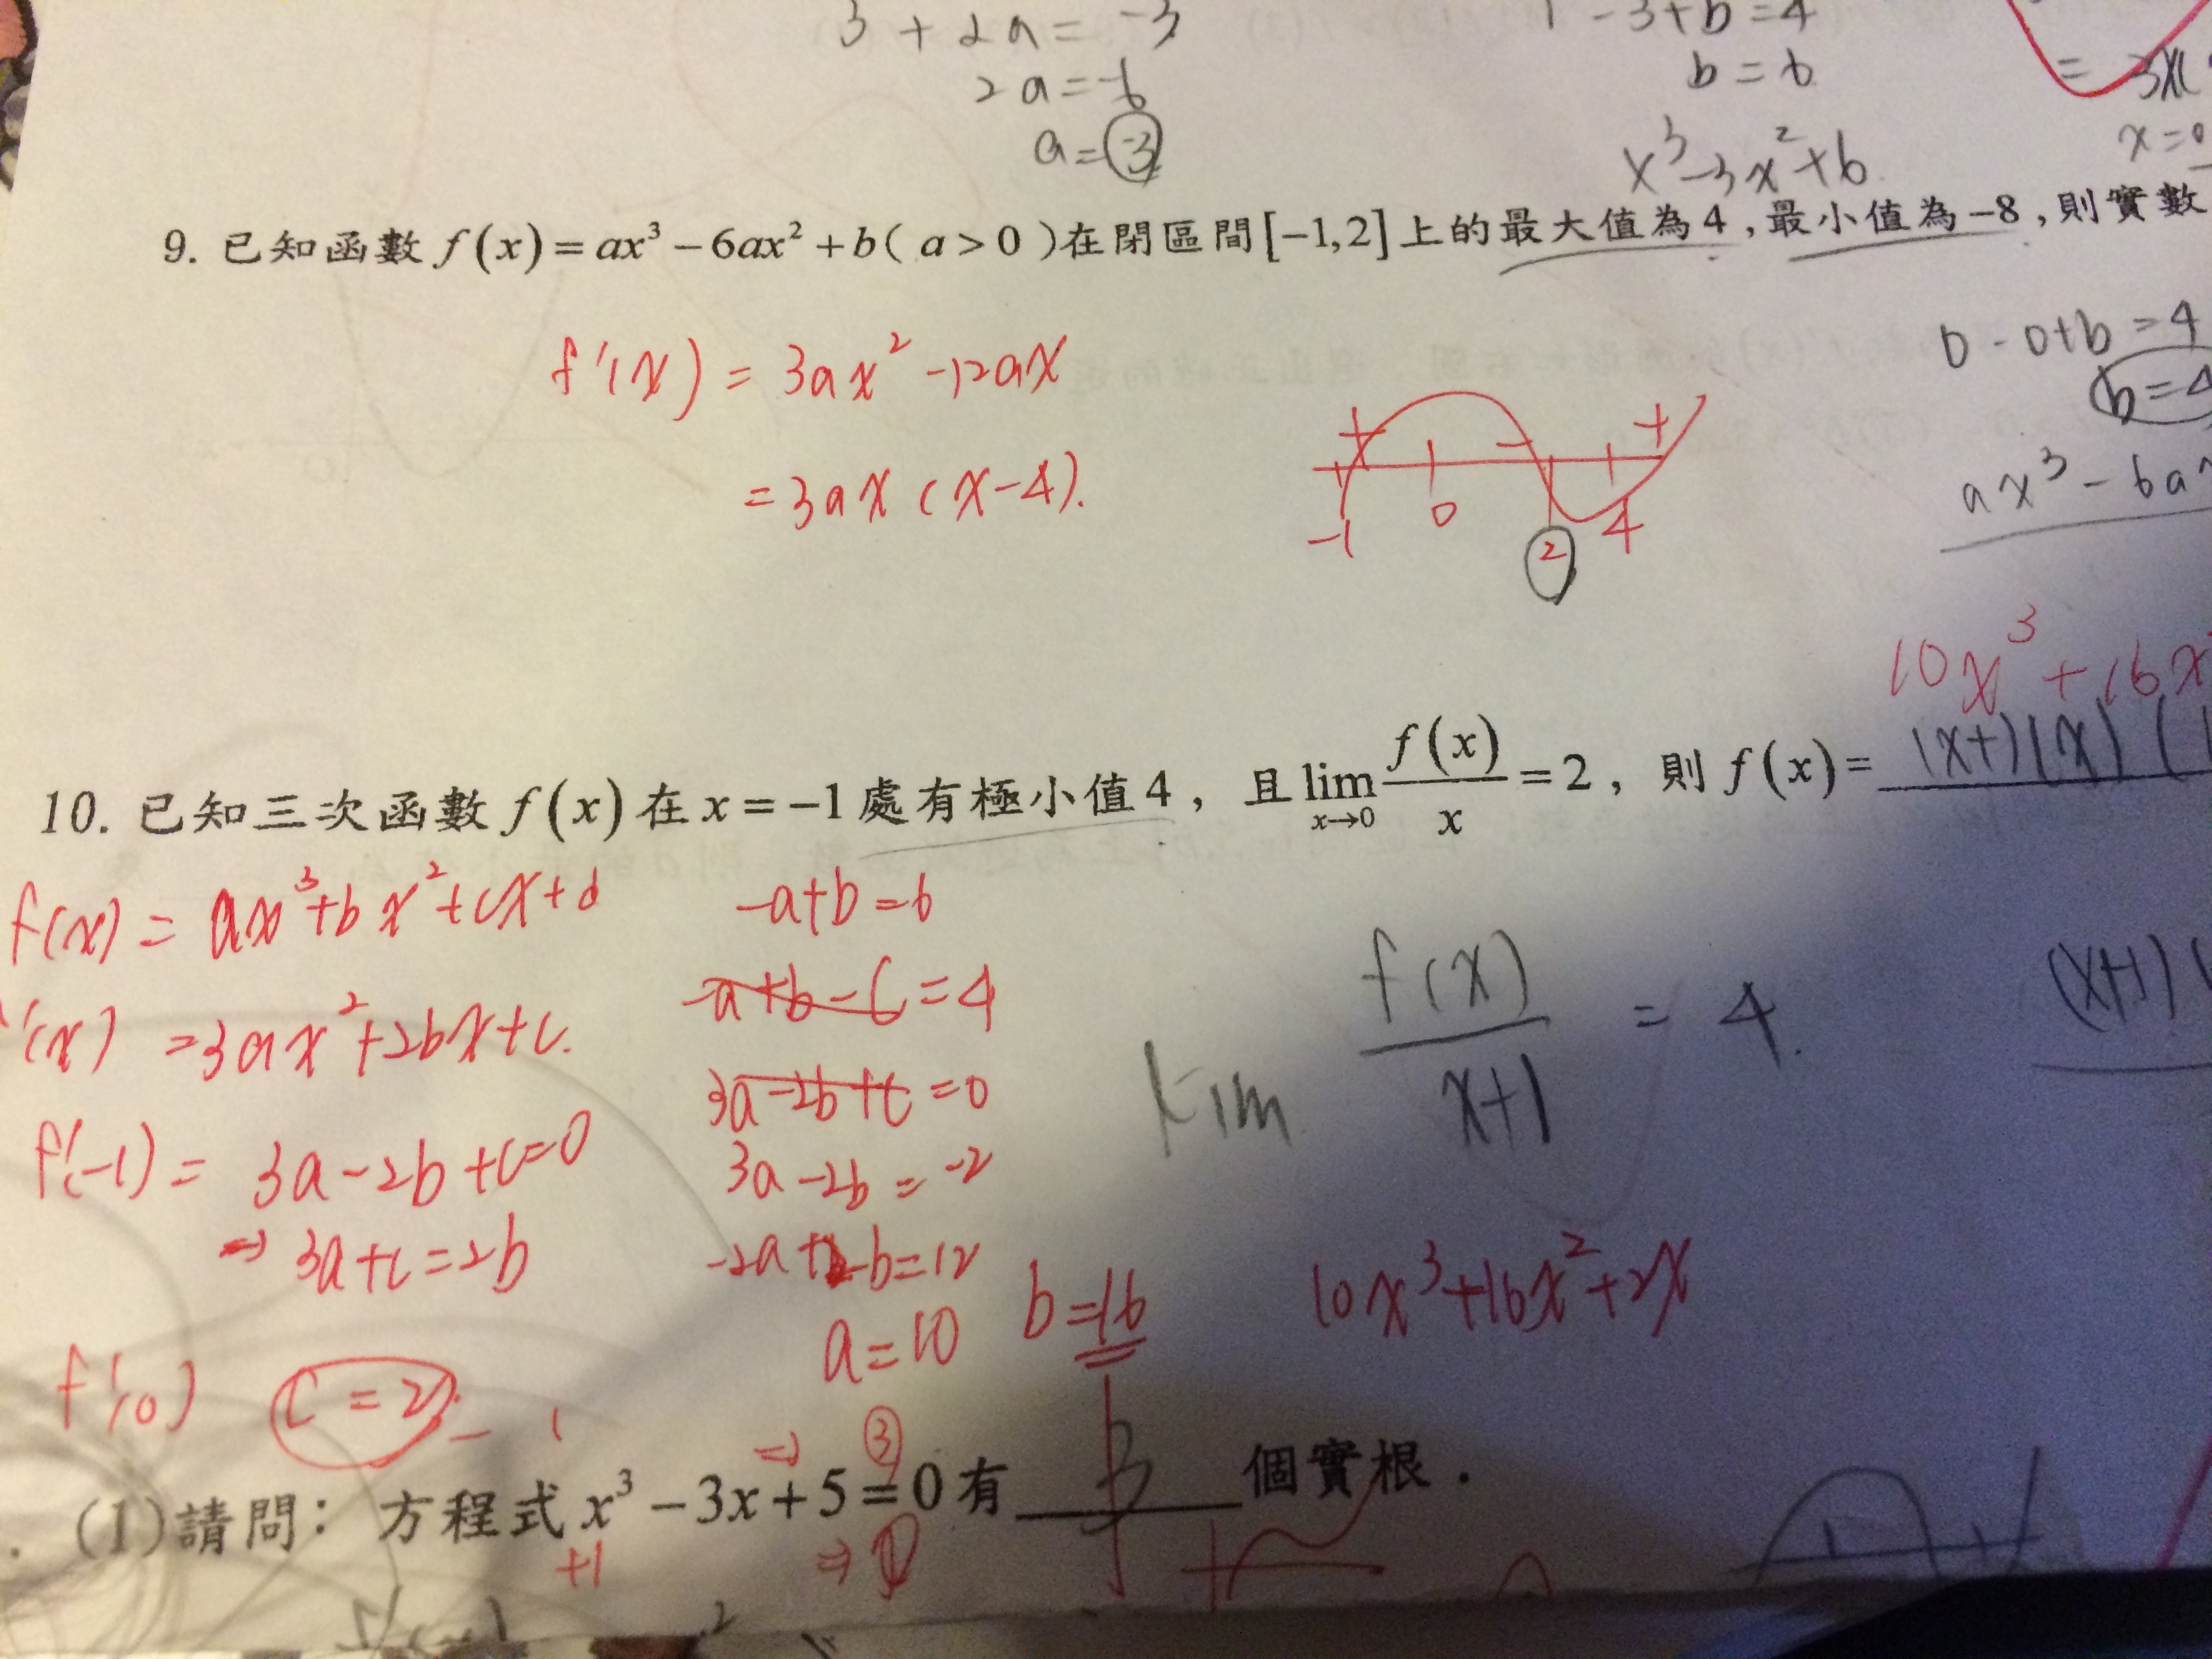 3 + 2a = -3
2a = -6
a = -3
1 - 3 + b = 4
b = 6
x³ - 3x² + 6
= 3x(
x = 0
9. 已知函數 f(x) = ax³ - 6ax² + b( a > 0 )在閉區間[-1,2]上的最大值為 4 ,最小值為 -8 ,則實數
f'(x) = 3ax² - 12ax
= 3ax (x-4).
+ - +
-1 0 2 4
0 - 0 + b = 4
b = 4
ax³ - 6a
10x³ + 16x
10. 已知三次函數 f(x) 在 x = -1 處有極小值 4 , 且 lim x→0 f(x)/x = 2 , 則 f(x) = (x+)(x)(
f(x) = ax³ + bx² + cx + d
'(x) = 3ax² + 2bx + c.
f'(-1) = 3a - 2b + c = 0
⇒ 3a + c = 2b
f'(0) c = 2
-a + b = 6
-a + b - c = 4
3a - 2b + c = 0
3a - 2b = -2
-2a + 2b = 12
a = 10 b = 16
lim f(x)/x+1 = 4.
(x+1)(
10x³ + 16x² + 2x
⇒ ③
(1)請問: 方程式 x³ - 3x + 5 = 0 有 3 個實根 .
+1